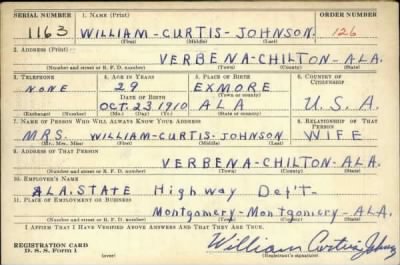 SERIAL NUMBER 1. NAME (Print) ORDER NUMBER
1163 WILLIAM-CURTIS-JOHNSON. 126
(First) (Middle) (Last)
2. ADDRESS (Print)
VERBENA-CHILTON-ALA.
(Number and street or R. F. D. number) (Town) (County) (State)
3. TELEPHONE 4. AGE IN YEARS 5. PLACE OF BIRTH 6. COUNTRY OF CITIZENSHIP
NONE 29 EXMORE
DATE OF BIRTH (Town or county)
OCT. 23. 1910 ALA U.S.A.
(Exchange) (Number) (Mo.) (Day) (Yr.) (State or country)
7. NAME OF PERSON WHO WILL ALWAYS KNOW YOUR ADDRESS 8. RELATIONSHIP OF THAT PERSON
MRS. WILLIAM-CURTIS-JOHNSON WIFE
(Mr., Mrs., Miss) (First) (Middle) (Last)
9. ADDRESS OF THAT PERSON
VERBENA-CHILTON-ALA.
(Number and street or R. F. D. number) (Town) (County) (State)
10. EMPLOYER'S NAME
ALA. STATE Highway Dep't-
11. PLACE OF EMPLOYMENT OR BUSINESS
Montgomery-Montgomery-ALA.
(Number and street or R. F. D. number) (Town) (County) (State)
I AFFIRM THAT I HAVE VERIFIED ABOVE ANSWERS AND THAT THEY ARE TRUE.
REGISTRATION CARD William Curtis Johnson
D. S. S. Form 1 (over) (Registrant's signature)